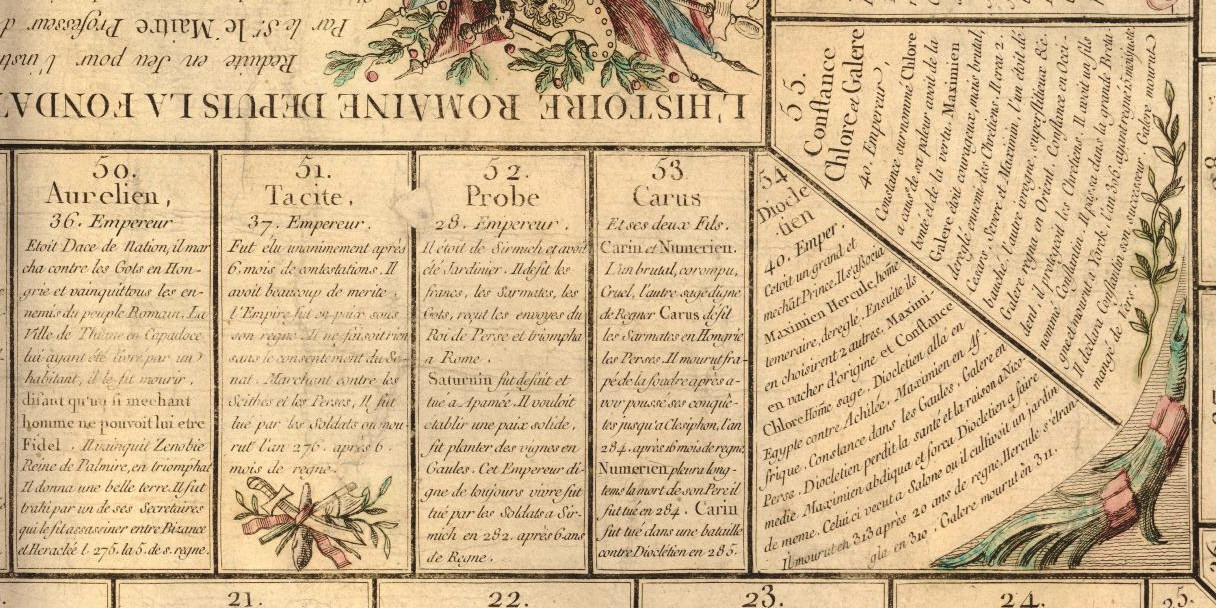 Par le Sr. le Maitre Professeur d
Reduite en Jeu pour l'inst
L'HISTOIRE ROMAINE DEPUIS LA FONDA
50.
Aurelien,
36. Empereur
Etoit Dace de Nation, il mar
cha contre les Gots en Hon-
grie et vainquit tous les en-
nemis du peuple Romain. La
Ville de en Capadoce
lui ayant été livré par un
habitant, il le fit mourir,
disant qu'un si mechant
homme ne pouvoit lui etre
Fidel. Il vainquit Zenobie
Reine de Palmire, en triomphat
Il donna une belle terre. Il fut
trahi par un de ses Secretaires
qui le fit assassiner entre Bizance
et Heracleé l. 275. la 5. de s. regne.
51.
Tacite,
37. Empereur.
Fut élu unanimement après
6. mois de contestations. Il
avoit beaucoup de merite,
l'Empire fut en paix sous
son regne. Il ne faisoit rien
sans le consentement du Se-
nat. Marchant contre les
Scithes et les Perses, Il fut
tué par les Soldats ou mou-
rut l'an 276. après 6.
mois de regne.
52.
Probe
28. Empereur.
Il étoit de Sirmich et avoit
été Jardinier. Il defit les
francs, les Sarmates, les
Gots, reçut les envoyés du
Roi de Perse et triompha
a Rome.
Saturnin fut defait et
tué a Apamée. Il vouloit
etablir une paix solide,
fit planter des vignes en
Gaules. Cet Empereur di-
gne de toujours vivre fut
tué par les Soldats a Sir-
mich en 282. après 6 ans
de Regne.
53.
Carus
Et ses deux Fils.
Carin et Numerien.
L'un brutal, corompu,
Cruel, l'autre sage digne
de Regner Carus defit
les Sarmates en Hongrie
les Perses. Il mourut fra-
pé de la foudre après a-
voir poussé ses conquê-
tes jusqu'a Clesiphon, l'an
284. après 16 mois de regne.
Numerien pleura long-
tems la mort de son Pere il
fut tué en 284. Carin
fut tué dans une bataille
contre Dioclétien en 285.
54
Diocle
tien
40. Emper.
Cetoit un grand et
mechât Prince. Il s'associa
Maximien Hercule, home
temeraire, dereglé. Ensuite ils
en choisirent 2 autres. Maximi-
en vacher d'origine et Constance
Chlore Home sage. Diocletien alla en
Egypte contre Achilée, Maximien en Af
frique. Constance dans les Gaules. Galere en
Perse. Diocletien perdit la santé et la raison a Nico-
medie Maximien abdiqua et forca Diocletien a faire
de meme. Celui ci vecut a Salone ou il cultivoit un jardin
Il mourut en 313 après 20 ans de regne. Hercule s'étran
gla en 310. Galere mourut en 311.
55.
Constance
Chlore et Galere
40. Empereur,
Constance surnommé Chlore
a cause de sa paleur avoit de la
bonté et de la vertu. Maximien
Galere étoit courageux mais brutal,
dereglé ennemi des Chretiens. Il crea 2.
Cesars, Severe et Maximin, l'un étoit dé-
bauché, l'autre ivrogne, superstitieux &c.
Galere regna en Orient. Constance en Occi-
dent, il protegeoit les Chretiens. Il avoit un fils
nommé Constantin. Il passa dans la grande Breta-
gne et mourut a Yorck, l'an 306, ayant regné 15 mois.
Il declara Constantin son successeur. Galere mourut
mangé de Vers.
21.
22.
23.
24.
25.